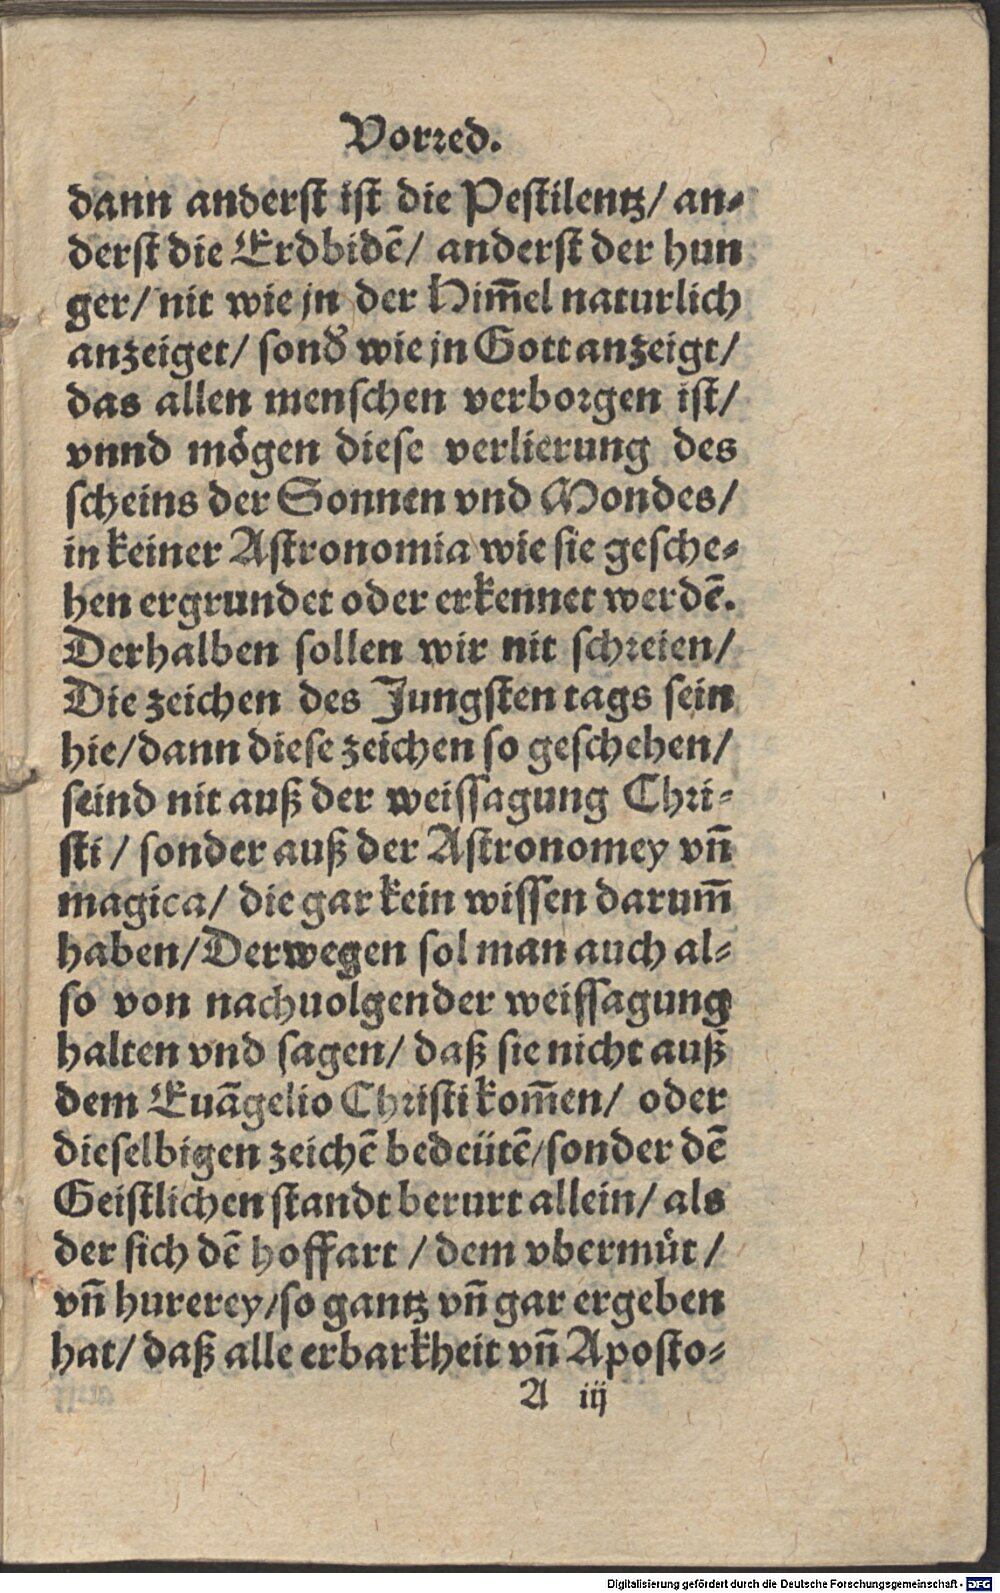 Vorred.
dann anderst ist die Pestilentz/ an-
derst die Erdbidē/ anderst der hun
ger/ nit wie jn der Him̄el naturlich
anzeiget/ sond̕ wie jn Gott anzeigt/
das allen menschen verborgen ist/
vnnd mögen diese verlierung des
scheins der Sonnen vnd Mondes/
in keiner Astronomia wie sie gesche-
hen ergrundet oder erkennet werdē.
Derhalben sollen wir nit schreien/
Die zeichen des Jungsten tags sein
hie/ dann diese zeichen so geschehen/
seind nit auß der weissagung Chri-
sti / sonder auß der Astronomey vn̄
magica/ die gar kein wissen darum̄
haben/ Derwegen sol man auch al-
so von nachuolgender weissagung
halten vnd sagen/ daß sie nicht auß
dem Euāgelio Christi kom̄en/ oder
dieselbigen zeichē bedeütē/ sonder dē
Geistlichen standt berurt allein/ als
der sich dē hoffart / dem vbermůt /
vn̄ hurerey/ so gantz vn̄ gar ergeben
hat/ daß alle erbarkheit vn̄ Aposto-
A iij
Digitalisierung gefördert durch die Deutsche Forschungsgemeinschaft - DFG